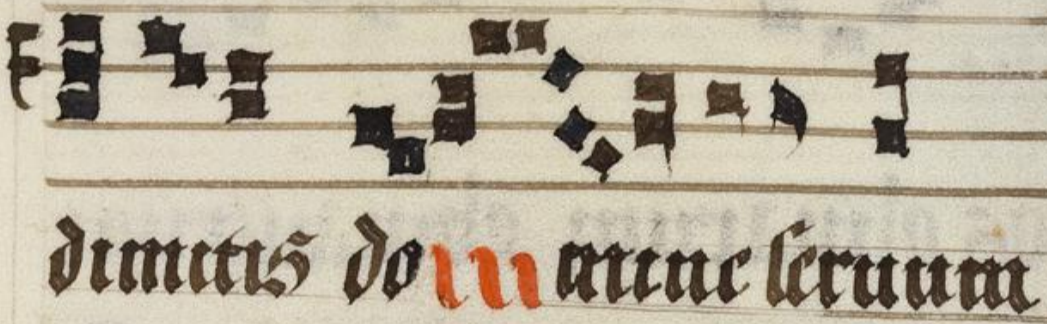 dimitis domine seruum